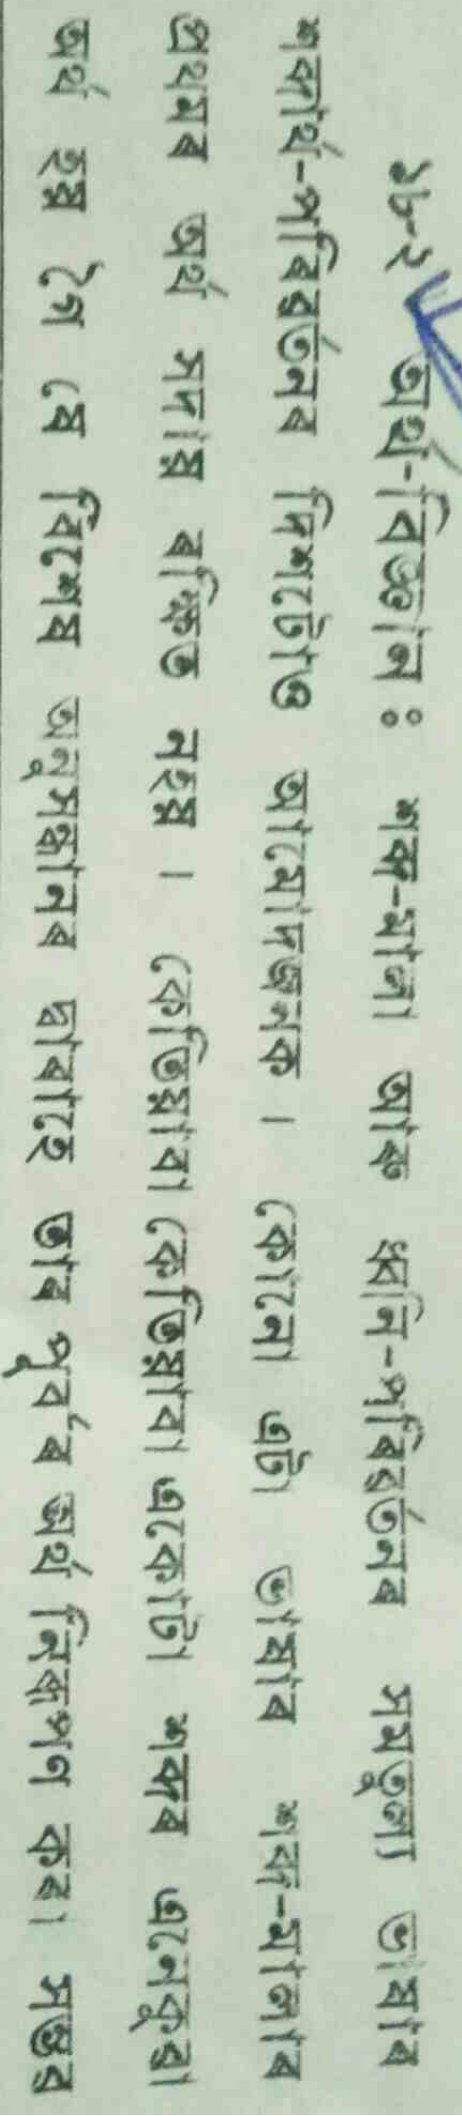 ১৮-২ অৰ্থ-বিজ্ঞান ঃ শব্দ-মালা আৰু ধ্বনি-পৰিৱৰ্তনৰ সমতুল্য ভাষাৰ
শব্দাৰ্থ-পৰিৱৰ্তনৰ দিশটোও আমোদজনক । কোনো এটা ভাষাৰ শব্দ-মালাৰ
প্ৰথমৰ অৰ্থ সদায় ৰক্ষিত নহয় । কেতিয়াবা কেতিয়াবা একোটা শব্দৰ এনেকুৱা
অৰ্থ হয় গৈ যে বিশেষ অনুসন্ধানৰ দ্বাৰাহে তাৰ পূৰ্বৰ অৰ্থ নিৰূপণ কৰা সম্ভৱ